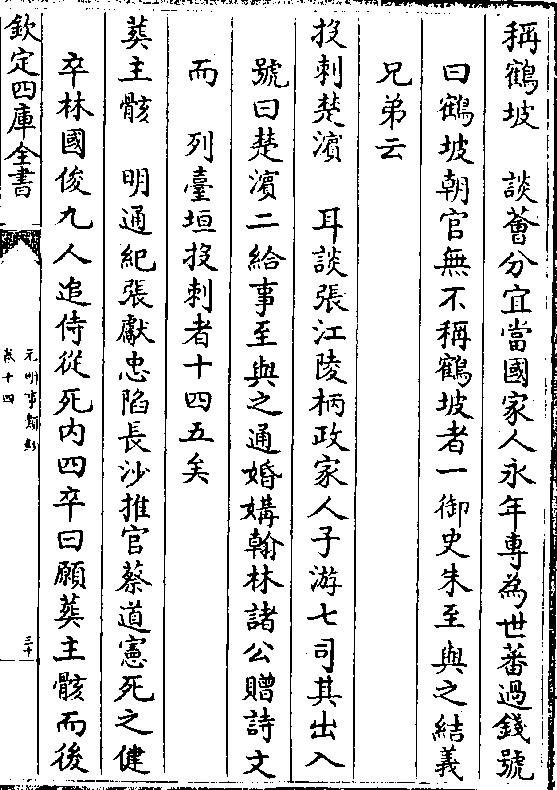 稱鶴坡　談薈分宜當國家人永年專為世蕃過錢號
曰鶴坡朝官無不稱鶴坡者一御史朱至與之結義
兄弟云
投刺楚濱　耳談張江陵柄政家人子游七司其出入
號曰楚濱二給事至與之通婚媾翰林諸公贈詩文
而　列臺垣投刺者十四五矣
葬主骸　明通紀張獻忠陷長沙推官蔡道憲死之健
卒林國俊九人追侍從死内四卒曰願葬主骸而後
欽定四庫全書
元明事類鈔
卷十四
三十